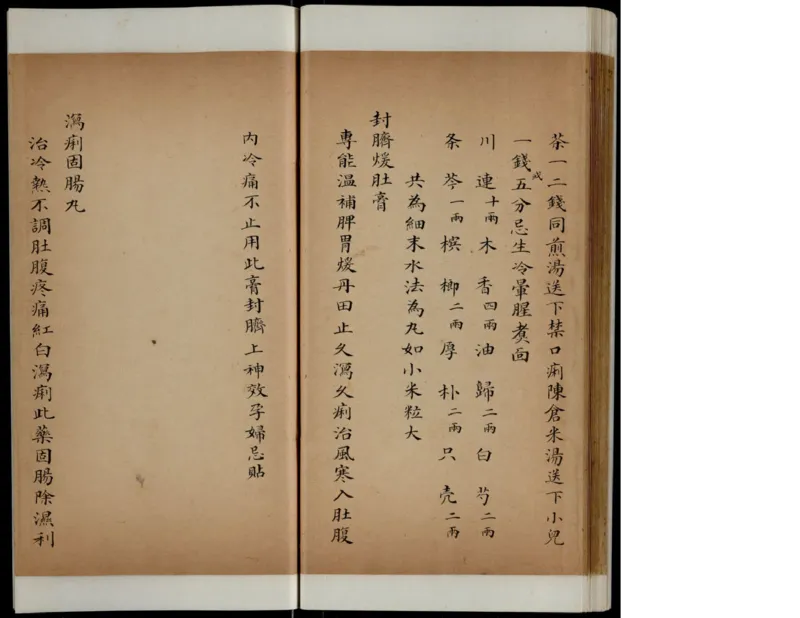 茶一二錢同煎湯送下禁口痢陳倉米湯送下小兒
一錢或五分忌生冷葷腥煑面
川連十兩木香四兩油歸二兩白芍二兩
条芩一兩檳榔二兩厚朴二兩只壳二兩
共為細末水法為丸如小米粒大
封臍煖肚膏
專能温補脾胃煖丹田止久瀉久痢治風寒入肚腹
内冷痛不止用此膏封臍上神效孕婦忌貼
瀉痢固腸丸
治冷熱不調肚腹疼痛紅白瀉痢此藥固腸除濕利